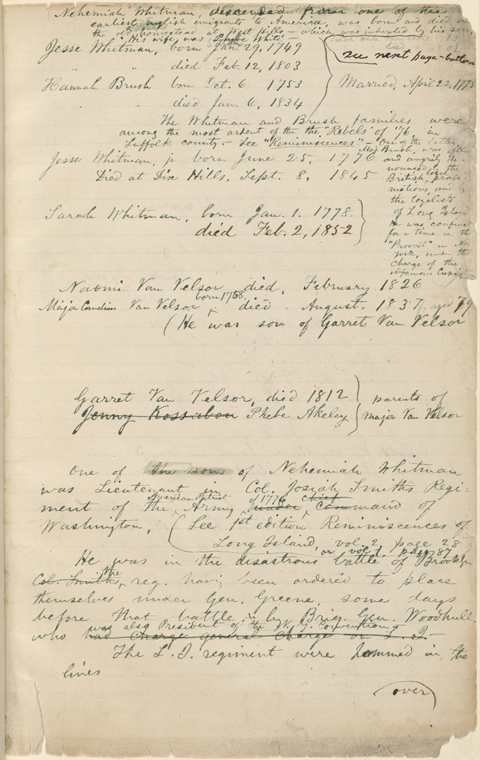 Nehemiah Whitman, descended from one of the
earliest English emigrants to America, was born and died on
the old homestead, at West Hills — which was inherited by his son,
His wife, was Phebe White
Jesse Whitman, born Jan. 29, 1749
" " died Feb. 12, 1803
see next page - bottom
Hannah Brush born Oct. 6 1753
Married, April 22, 1775
" died Jan. 6, 1834
The Whitman and Brush families were
among the most ardent of the the "Rebels" of '76, in
Suffolk county — See "Reminiscences" — One of the latter,
Maj Brush, was
Jesse Whitman, jr born June 25, 1776
Died at Dix Hills, Sept. 8, 1845
and angrily
nounced by the
British, local procla-
mations, and by
the loyalists
of Long Island
He was confined
for a time in the
"Provost" in New
York, under the
charge of the
infamous Cunn
Sarah Whitman, born Jan. 1. 1778.
died Feb. 2, 1852
Naomi Van Velsor died, February 1826
born 1758
Major Cornelius Van Velsor, died August, 1837, aged 79
(He was son of Garret Van Velsor
Garret Van Velsor, died 1812
parents of
Jenny Kossabon Phebe Akeley
Major Van Velsor
One of the sons of Nehemiah Whitman
was Lieutenant in Col. Josiah Smith's Regi-
of 1776 chief
ment of the Army, under, command of
Washington, (See 1st edition Reminiscences of
Long Island, vol. 2, page 28
or vol. 1. page 87
He was in the disastrous battle of Brooklyn
the
Col. Smith's, reg. having been ordered to place
themselves under Gen. Greene, some days
before that battle, by Brig. Gen. Woodhull,
was also President of the N.Y. Convention
who had charge general charge on L. I.
The L. I. regiment were hemmed in the
lines
(over)